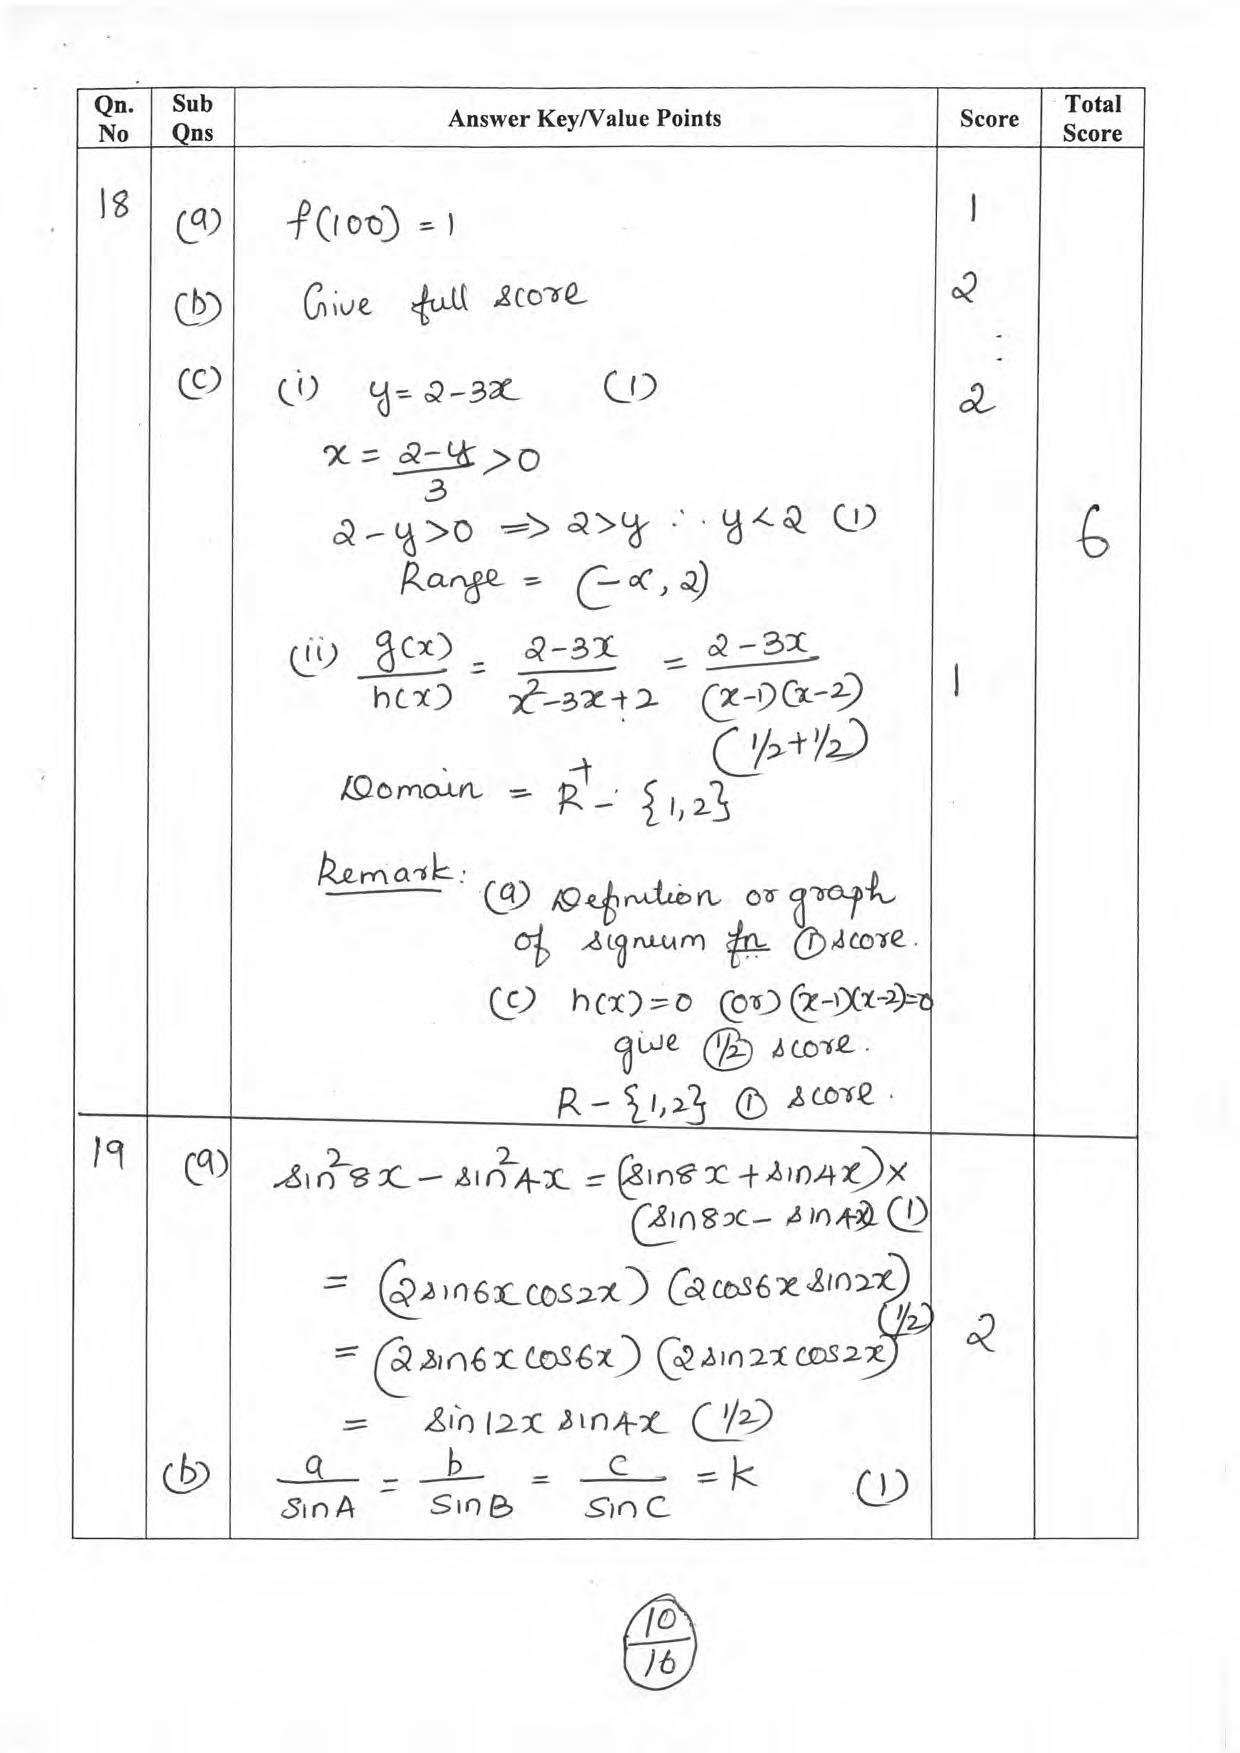 Qn. No Sub Qns Answer Key/Value Points Score Total Score
18 (a) f(100) = 1 1
(b) Give full score 2
(c) (i) y = 2-3x (1) 2
x = 2-y/3 > 0
2-y>0 ⇒ 2>y ∴ y<2 (1) 6
Range = (-∝, 2)
(ii) g(x)/h(x) = 2-3x/x²-3x+2 = 2-3x/(x-1)(x-2) 1
(1/2+1/2)
Domain = R⁺ - {1,2}
Remark: (a) Definition or graph
of signum fn ① score.
(c) h(x)=0 (or) (x-1)(x-2)=0
give (1/2) score.
R - {1,2} ① score.
19 (a) sin²8x - sin²4x = (sin8x + sin4x) ×
(sin8x - sin4x) (1)
= (2sin6x cos2x) (2cos6x sin2x)
(1/2)
= (2sin6x cos6x) (2sin2x cos2x) 2
= sin12x sin4x (1/2)
(b) a/sinA = b/sinB = c/sinC = k (1)
10/16